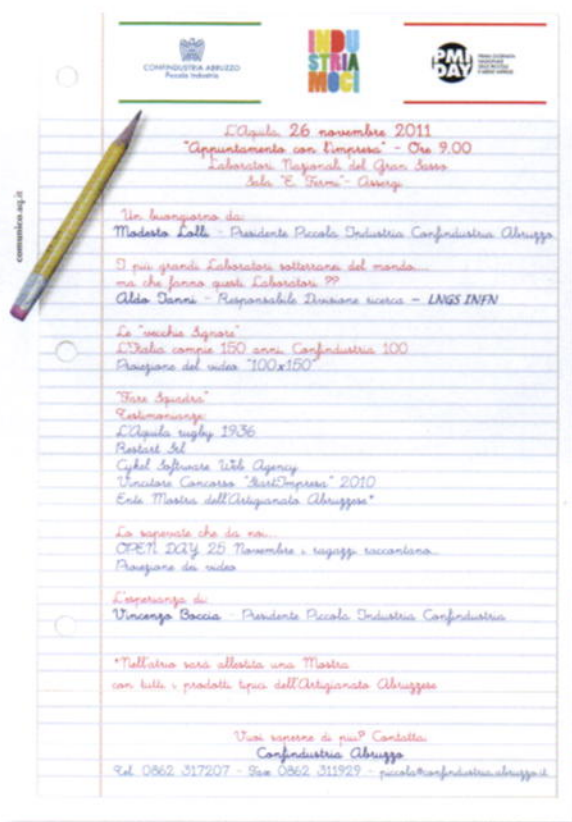 CONFINDUSTRIA ABRUZZO
Piccola Industria
INDU
STRIA
MOCI
PMI
DAY
comunico.aq.it
L'Aquila 26 novembre 2011
"Appuntamento con l'impresa" - Ore 9.00
Laboratori Nazionali del Gran Sasso
Sala "E. Fermi" - Assergi
Un buongiorno da:
Modesto Lolli - Presidente Piccola Industria Confindustria Abruzzo
I più grandi Laboratori sotterranei del mondo....
ma che fanno questi Laboratori ??
Aldo Ianni - Responsabile Divisione ricerca - LNGS INFN
Le "vecchie Signore"
L'Italia compie 150 anni, Confindustria 100
Proiezione del video "100x150"
"Fare Squadra"
Testimonianze:
L'Aquila rugby 1936
Restart Srl
Cykel Software Web Agency
Vincitore Concorso "StartImpresa" 2010
Ente Mostra dell'Artigianato Abruzzese*
Lo sapevate che da noi...
OPEN DAY 25 Novembre i ragazzi raccontano...
Proiezione dei video
L'esperienza di:
Vincenzo Boccia - Presidente Piccola Industria Confindustria
*Nell'atrio sarà allestita una Mostra
con tutti i prodotti tipici dell'Artigianato Abruzzese
Vuoi saperne di più? Contatta:
Confindustria Abruzzo
Tel. 0862 317207 - Fax 0862 311929 - piccola@confindustria.abruzzo.it